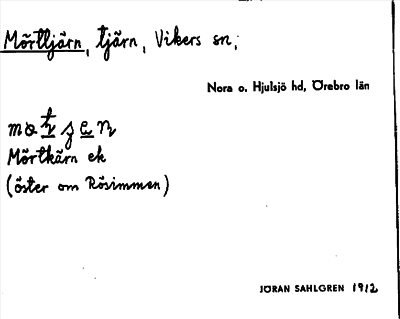 Mörttjärn, tjärn, Vikers sn;
Nora o. Hjulsjö hd, Örebro län
Mörtkärn ek
(öster om Rösimmen)
JÖRAN SAHLGREN 1912